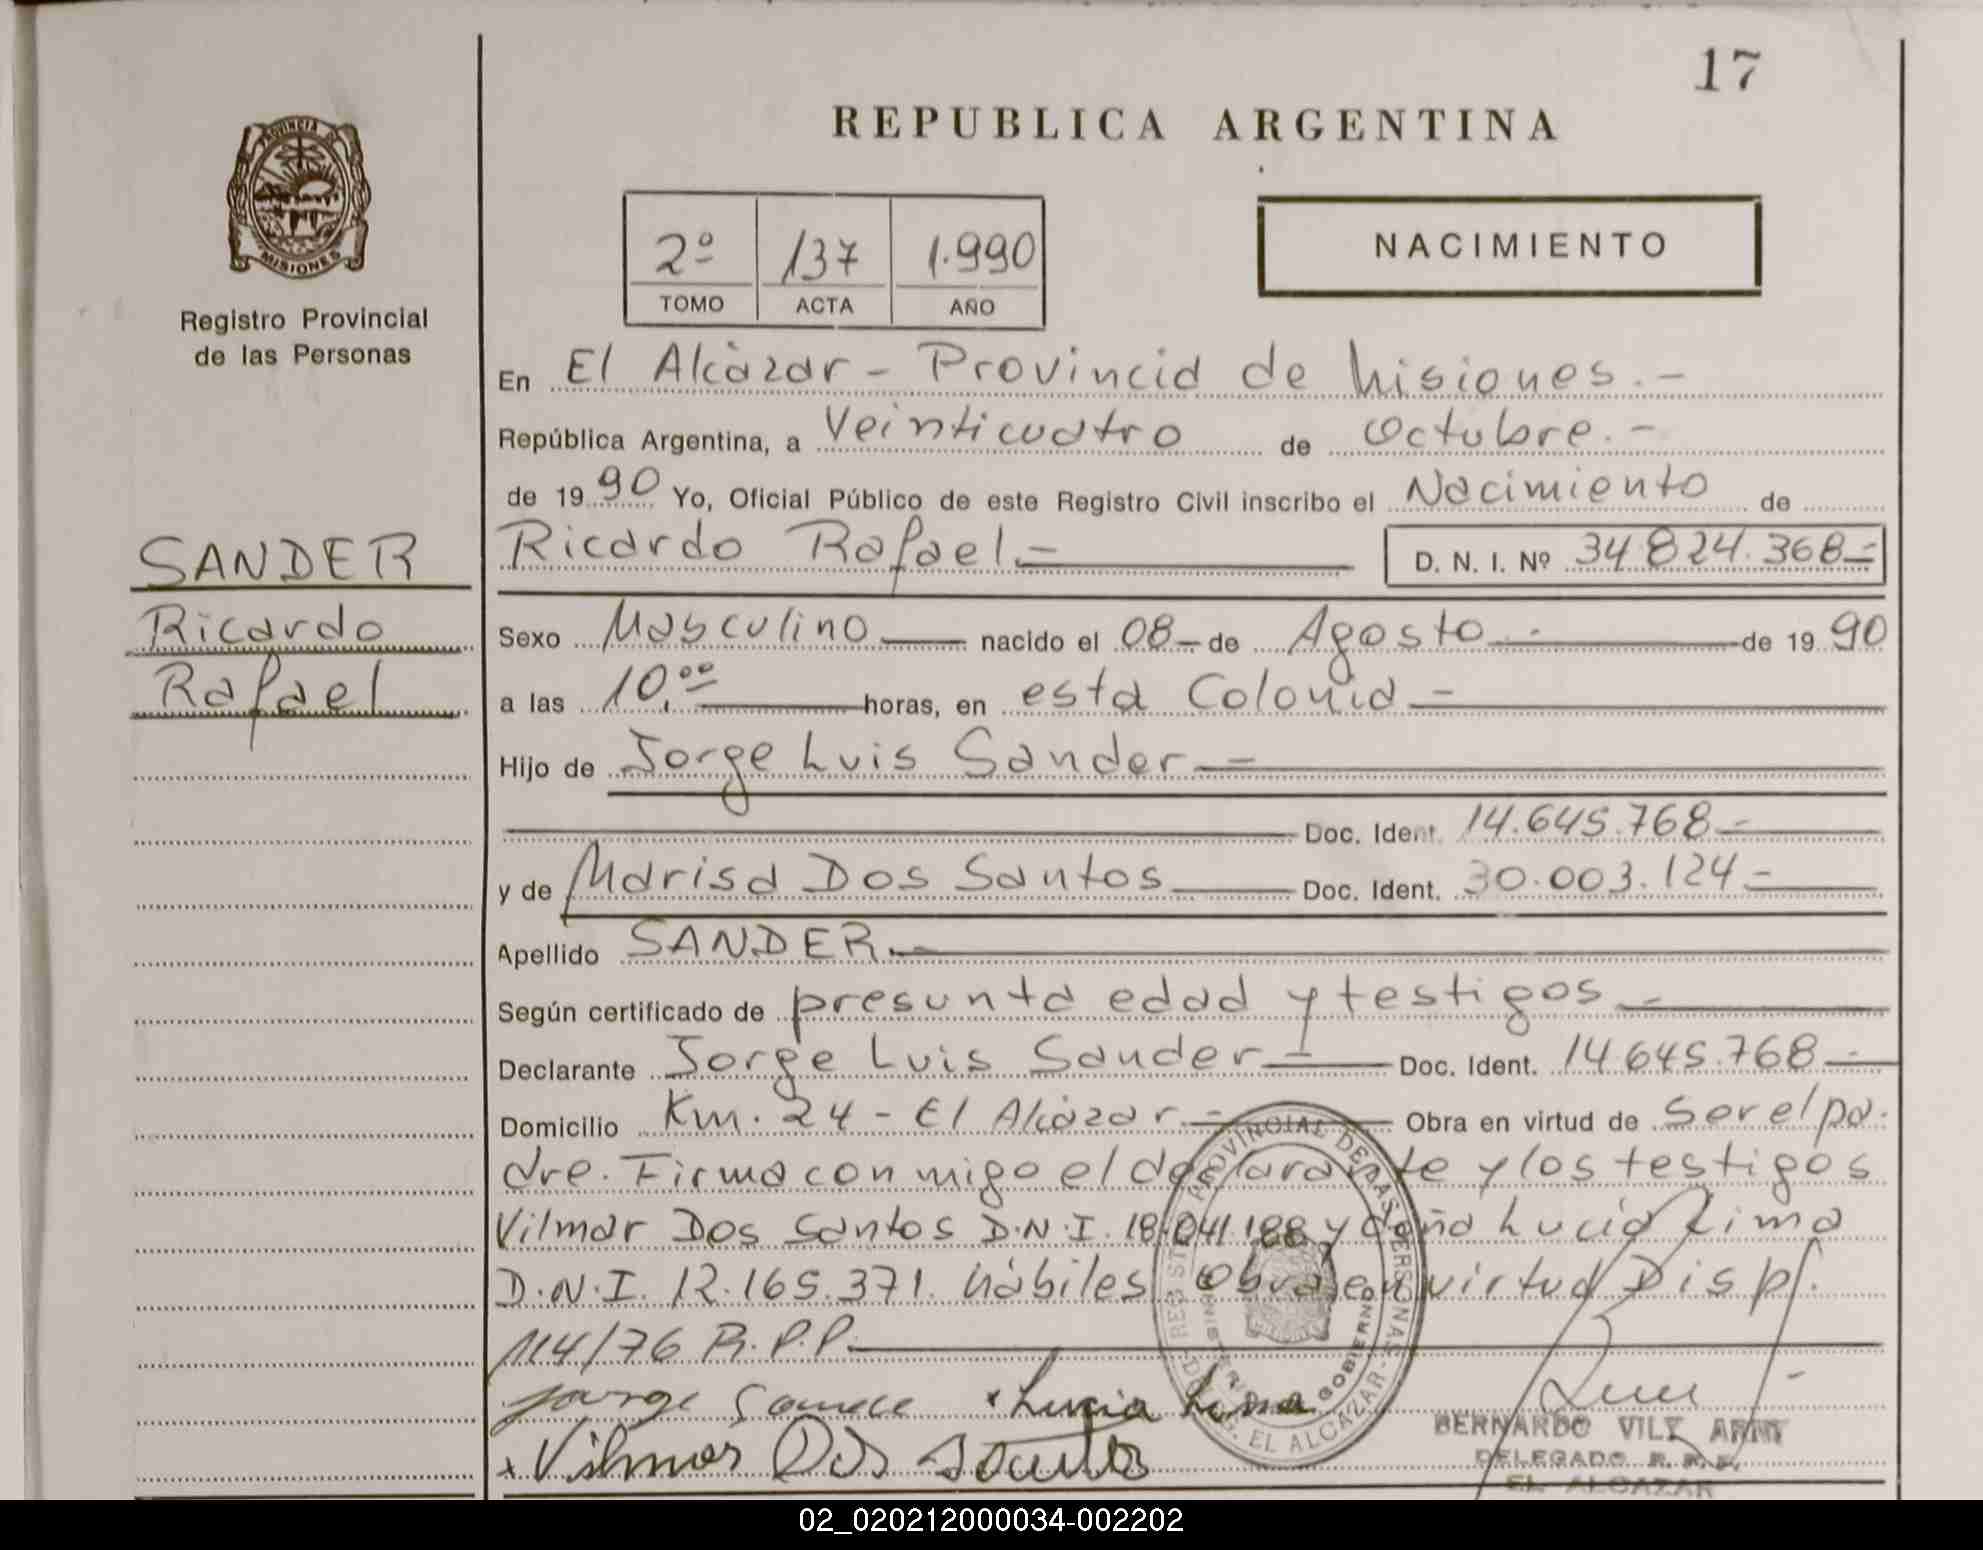 17
REPUBLICA ARGENTINA
PROVINCIA DE
MISIONES
Registro Provincial
de las Personas
2º 137 1.990
TOMO ACTA AÑO
NACIMIENTO
En El Alcàzar - Provincia de Misiones.-
República Argentina, a Veinticuatro de Octubre.-
de 1990 Yo, Oficial Público de este Registro Civil inscribo el Nacimiento de
SANDER
Ricardo
Rafael
Ricardo Rafael.- D. N. I. Nº 34.824.368-
Sexo Masculino nacido el 08- de Agosto-.- de 1990
a las 10.00 horas, en esta Colonia -
Hijo de Jorge Luis Sander -
Doc. Ident. 14.645.768-
y de Marisa Dos Santos Doc. Ident. 30.003.124-
Apellido SANDER.-
Según certificado de presunta edad y testigos -
Declarante Jorge Luis Sander - Doc. Ident. 14.645.768-
Domicilio Km. 24 - El Alcàzar - Obra en virtud de Ser el pa.
dre. Firma con migo el declarante y los testigos
Vilmar Dos Santos D.N.I. 18.041.188 y doña Lucia Lima
D.N.I. 12.165.371. hàbiles Obra en virtud Disp.
114/76 R.P.P.
Jorge x Lucia Lima
x Vilmar Dos Santos
PROVINCIAL DE LAS PERSONAS
GOBIERNO
DELEG. EL ALCAZAR
BERNARDO VILY
DELEGADO R. P. P.
EL ALCAZAR
02_020212000034-002202